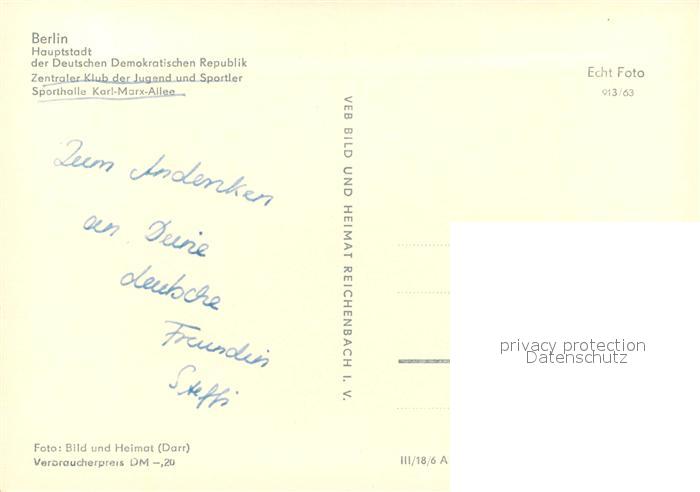 Berlin
Hauptstadt
der Deutschen Demokratischen Republik
Zentraler Klub der Jugend und Sportler
Sporthalle Karl-Marx-Allee
Echt Foto
913/63
Zum Andenken
an Deine
deutsche
Freundin
Steffi
VEB BILD UND HEIMAT REICHENBACH I. V.
privacy protection
Datenschutz
Foto: Bild und Heimat (Darr)
Verbraucherpreis DM -,20
III/18/6 A